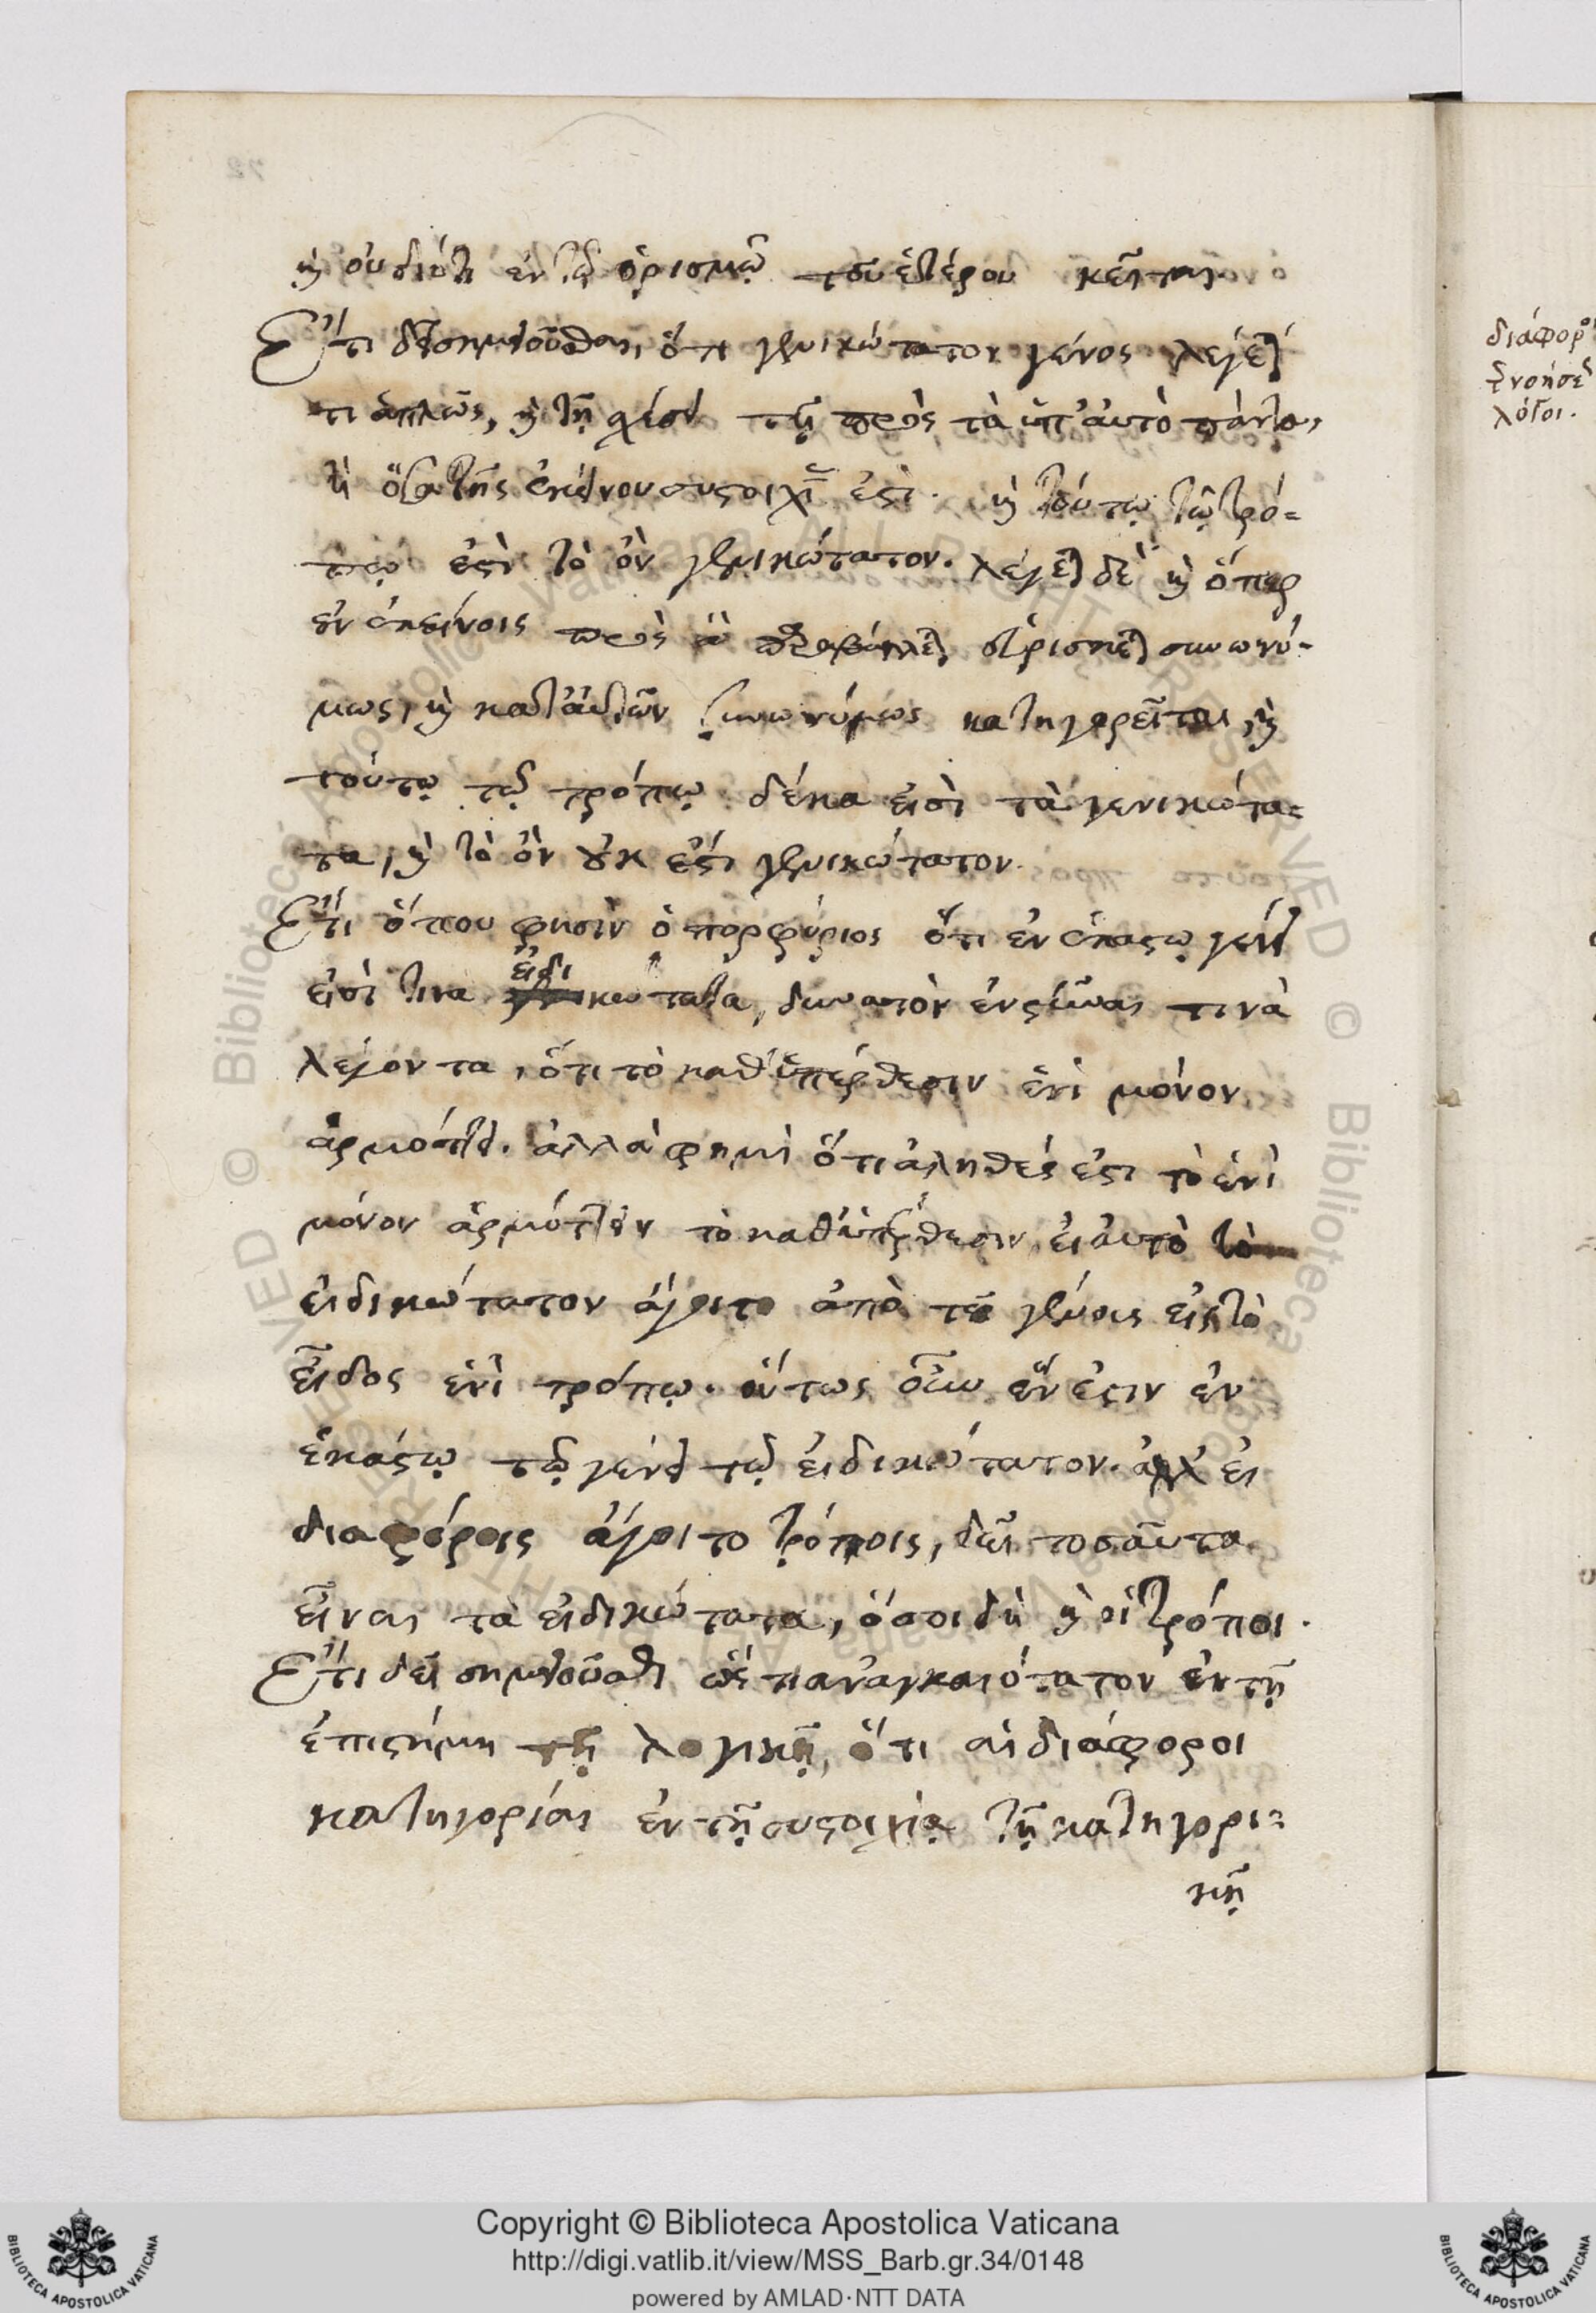 καὶ οὐ διότι ἐν τῷ ὁρισμῷ τοῦ ἑτέρου κεῖται.
Ἔτι δεῖ σημειοῦσθαι, ὅτι γενικώτατον γένος λέγεταί
τι ἁπλῶς, καὶ τῇ σχέσει τῇ πρὸς τὰ ὑπ' αὐτὸ πάντα,
τὰ τῆς ἐκείνου συστοιχίας ἐστί. καὶ τούτῳ τῷ τρό=
πῳ ἐστὶ τὸ ὂν γενικώτατον. λέγεται δὲ καὶ ὅπερ
ἐν ἐκείνοις πρὸς ἃ παραβάλλεται εὑρίσκεται συνωνύ-
μως, καὶ κατ' αὐτῶν συνωνύμως κατηγορεῖται, καὶ
τούτῳ τῷ τρόπῳ δέκα εἰσὶ τὰ γενικώτα=
τα, καὶ τὸ ὂν οὐκ ἔστι γενικώτατον.
Ἔτι ὅπου φησὶν ὁ πορφύριος ὅτι ἐν ἑκάστῳ γένει
εἰσί τινα εἰδικώτατα, δυνατὸν ἐνστῆναι τινὰ
λέγοντα, ὅτι τὸ καθ' ὑπέρθεσιν ἑνὶ μόνον
ἁρμόττει. ἀλλὰ φημὶ ὅτι ἀληθές ἐστι τὸ ἑνὶ
μόνον ἁρμόττειν τὸ καθ' ὑπέρθεσιν, εἰ αὐτὸ τὸ
εἰδικώτατον ἄγοιτο ἀπὸ τοῦ γένους εἰς τὸ
εἶδος ἑνὶ τρόπῳ. οὕτως οὖν ἕν ἐστιν ἐν
ἑκάστῳ τῷ γένει τῷ εἰδικώτατον. ἀλλ' εἰ
διαφόροις ἄγοιτο τρόποις, δεῖ τοσαῦτα
εἶναι τὰ εἰδικώτατα, ὅσοι δὴ καὶ οἱ τρόποι.
Ἔτι δεῖ σημειοῦσθαι ὥς τι ἀναγκαιότατον ἐν τῇ
ἐπιστήμῃ τῇ λογικῇ, ὅτι αἱ διάφοροι
κατηγορίαι ἐν τῇ συστοιχίᾳ τῇ κατηγορι=
κῇ
διάφορ
λόγοι.
Copyright © Biblioteca Apostolica Vaticana
http://digi.vatlib.it/view/MSS_Barb.gr.34/0148
powered by AMLAD·NTT DATA